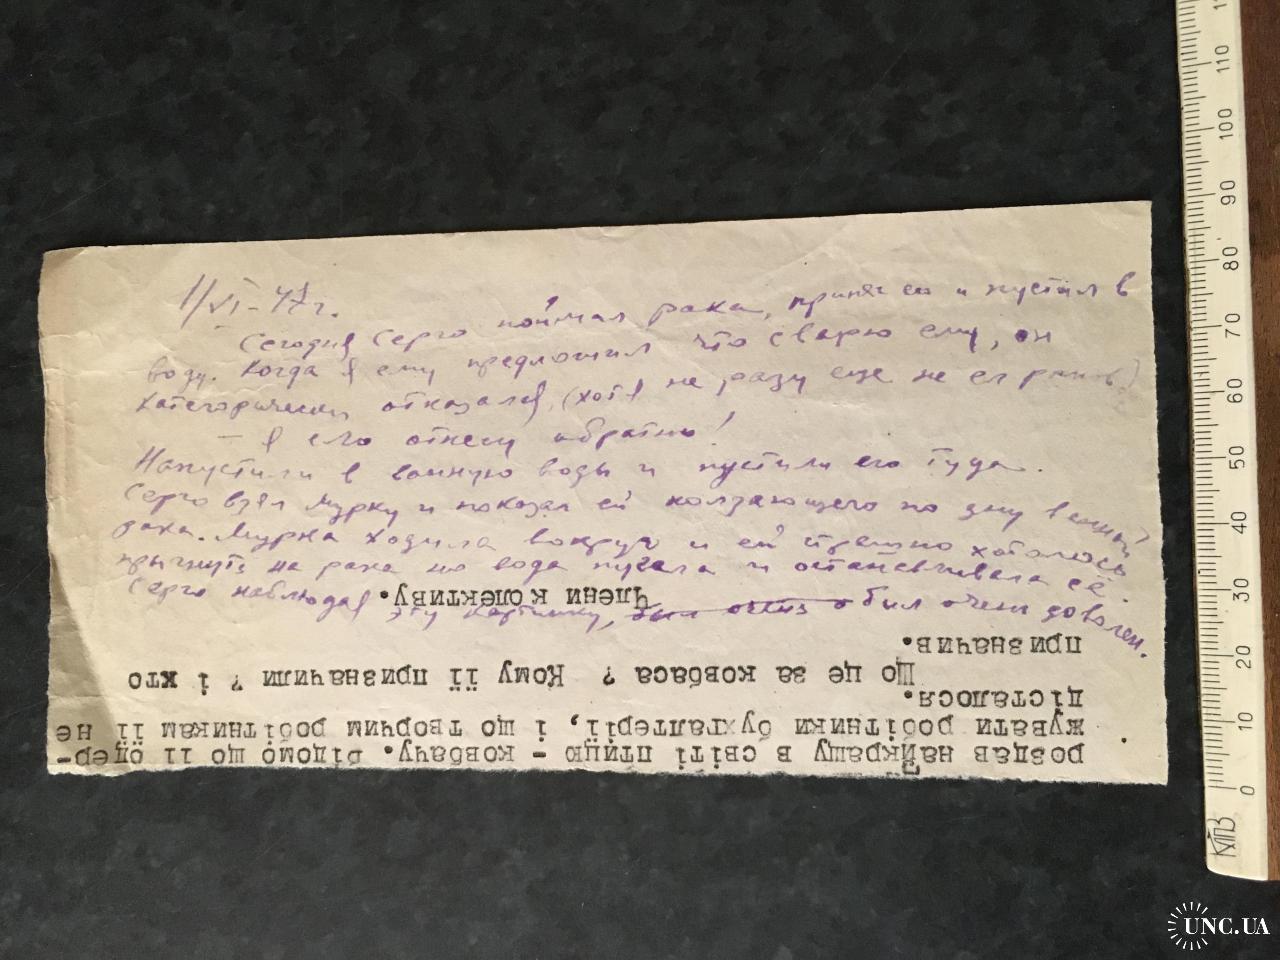 1/VI-47г.
Сегодня Серго поймал рака, принес его и пустил в
воду. Когда я ему предложил что сварю ему, он
категорически отказался, (хотя не разу еще не ел раков)
— я его отнесу обратно!
Напустили в ванную воды и пустили его туда.
Серго взял Мурку и показал ей ползающего по дну ванны
рака. Мурка ходила вокруг и ей страшно хотелось
прыгнуть на рака но вода пугала и останавливала её.
Серго наблюдая эту картинку, был очень доволен.
роздав найкращу в світі птицю - ковбасу. Відомо що її одер-
жувати робітники бухгалтерії, і що творчим робітникам її не
дісталося.
Що це за ковбаса ? Кому її призначили ? і хто
призначив.
Члени колективу.
110
100
90
80
70
60
50
40
30
20
10
0
UNC.UA